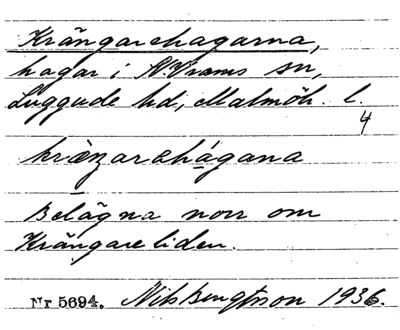 Krängarehagarna,
hagar i N. Vrams sn,
Luggude hd, Malmöh. l.
4
kræŋarahágana
Belägna norr om
Krängareliden.
Nr 5694. Nils Bengtsson 1936.